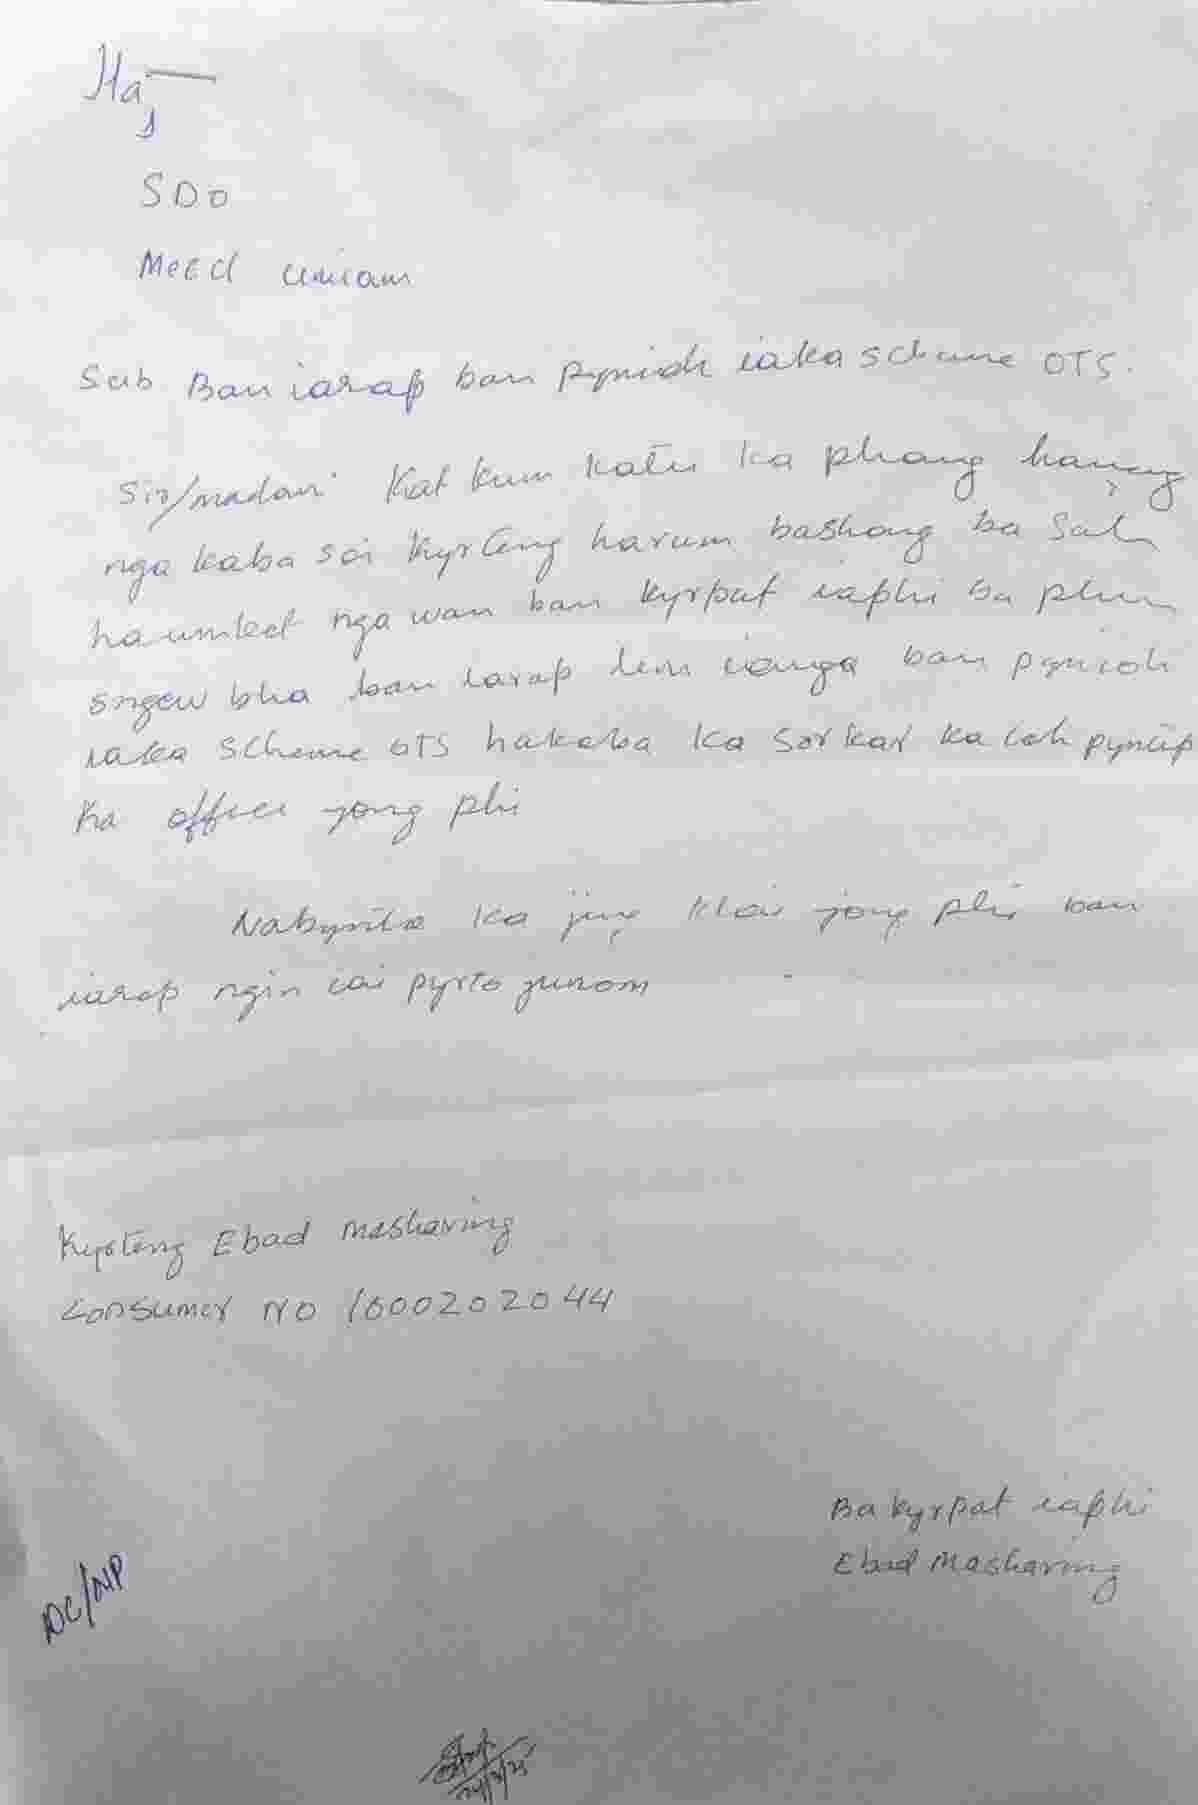 Ha,
SDO
MeECl umiam
Sub Ban iarap ban pynioh iaka scheme OTS.
Sir/madam Kat kum katei ka phang haneng
nga kaba soi kyrteng harum bashong ba Sah
ha umket nga wan ban kyrpat iaphi ba phin
sngew bha ban iarap lem ianga ban pynioh
iaka Scheme OTS hakaba ka Sorkar ka ioh pyntip
ka office jong phi
Nabynta ka jing khlei jong phi ban
iarap ngin iai pyrto junom
Kyrteng Ebad Masharing
Consumer NO 16000202044
Ba kyrpat iaphi
Ebad Masharing